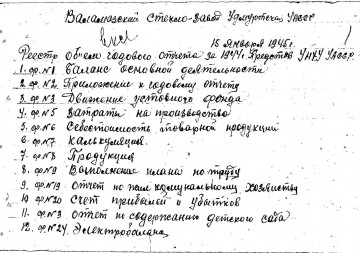 Валамазский Стекло-завод Удмуртская УАССР
15 января 1945 г.
Реестр Объем годового отчета за 1944 г. Средств УНХУ УАССР
1. ф. №1 Баланс основной деятельности
2. ф. №2 Приложение к годовому отчету
3. ф. №3 Движение уставного фонда
4. ф. №5 Затраты на производство
5. ф. №6 Себестоимость товарной продукции
6. ф. №7 Калькуляция
7. ф. №8 Продукция
8. ф. №9 Выполнение плана по труду
9. ф. №19 Отчет по жил. комунальному хозяйству
10. ф. №20 Счет прибылей и убытков
11. ф. №3 Отчет по содержанию детского сада
12. ф. №24. Электробаланс